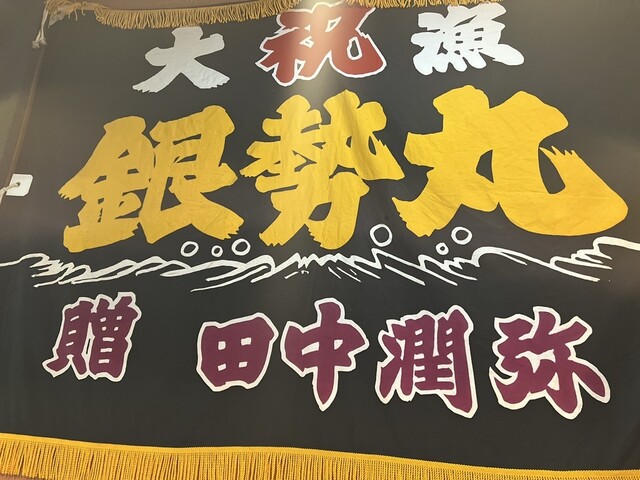 大祝漁
銀勢丸
贈 田中潤弥